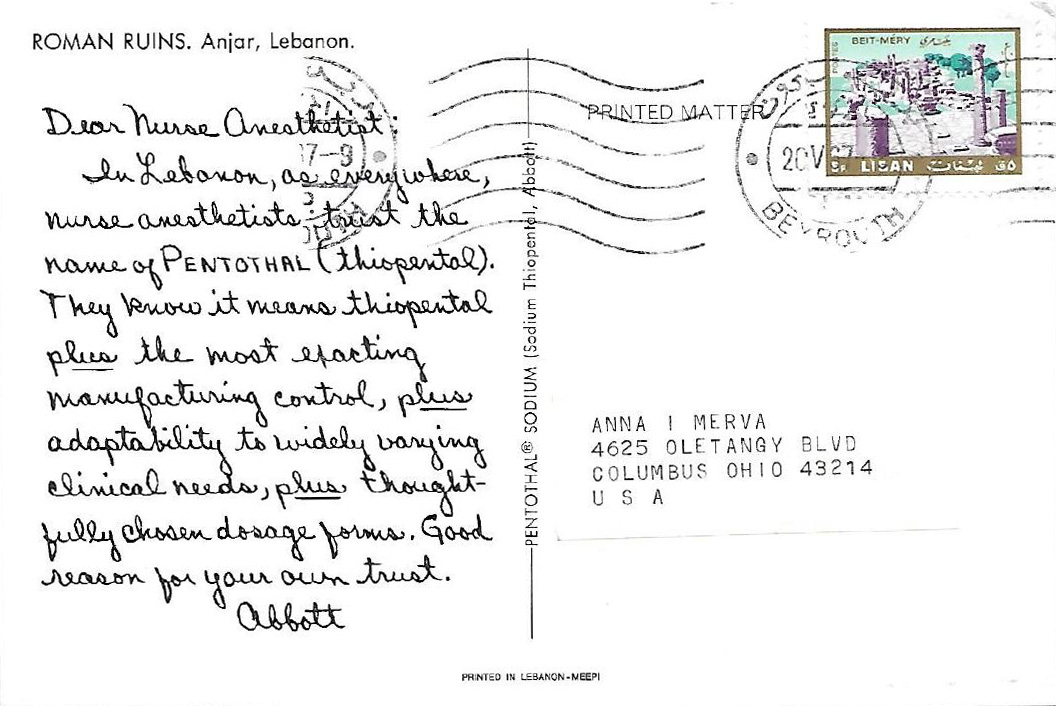 ROMAN RUINS. Anjar, Lebanon.
Dear Nurse Anesthetist:
In Lebanon, as everywhere,
nurse anesthetists trust the
name of PENTOTHAL (thiopental).
They know it means thiopental
plus the most exacting
manufacturing control, plus
adaptability to widely varying
clinical needs, plus thought-
fully chosen dosage forms. Good
reason for your own trust.
Abbott
PENTOTHAL® SODIUM (Sodium Thiopental, Abbott)
PRINTED MATTER
BEIT-MÉRY
LIBAN لبنان
20 V
BEYROUTH
17-9
ANNA I MERVA
4625 OLETANGY BLVD
COLUMBUS OHIO 43214
U S A
PRINTED IN LEBANON-MEEPI